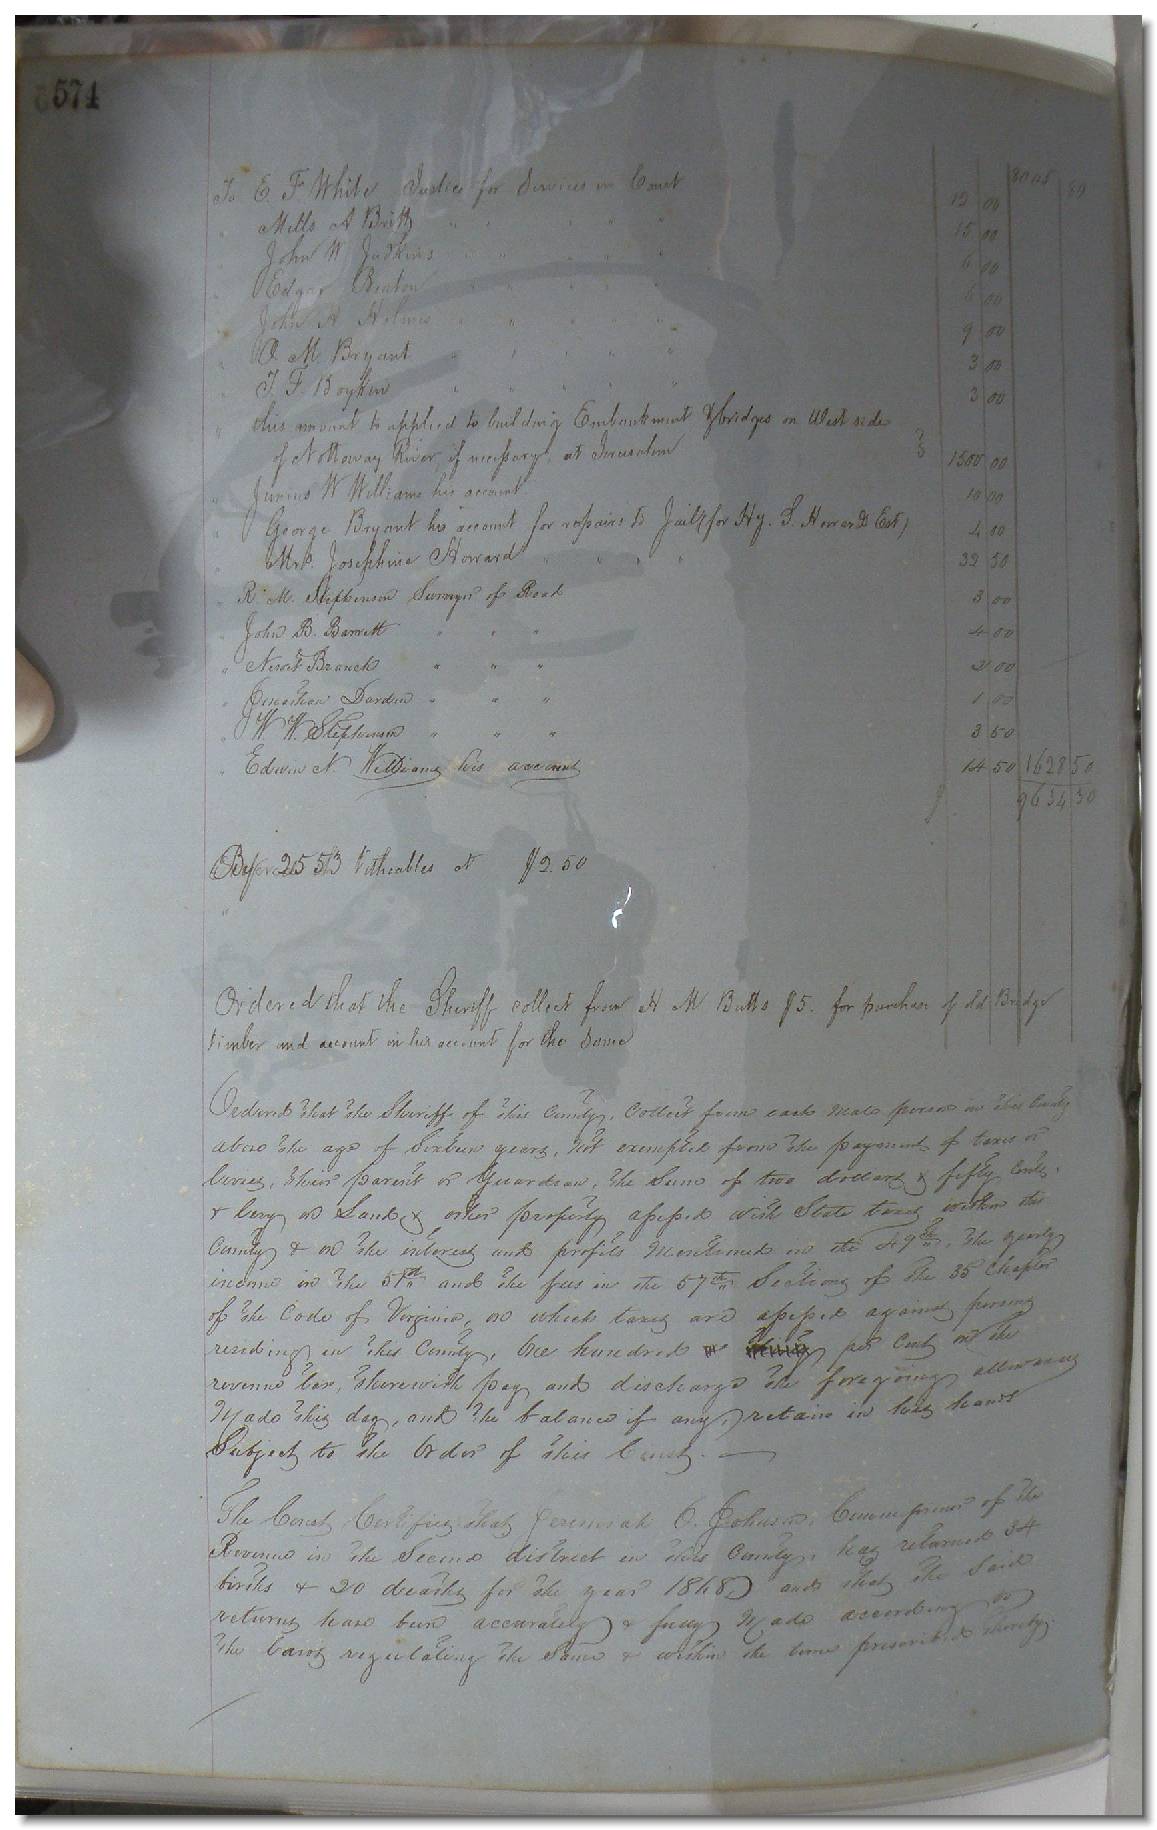 574
8005 80
To E. F White Justice for Services in Court 12 00
" Mills A Britt " " " " 15 00
" John W Judkins " " " " 6 00
" Edgar Benton " " " " 6 00
" John H Holmes " " " " 9 00
" O. M. Bryant " " " " 3 00
" J. F. Boykin " " " " 3 00
" this amount to applied to building Embankment & bridges on West side
of Nottoway River, if necessary, at Jerusalem 1500 00
" Junius W Williams his account 10 00
" George Bryant his account for repairs to Jail (for Hy. S. Est) 4 00
" Mrs. Josephine Howard " " " " 32 50
" R. M. Stephenson Surveyor of Road 3 00
" John B. Barrett " " " 4 00
" Newit Branch " " " 2 00
" Jonathan Darden " " " 1 00
" W. W. Stephenson " " " 3 50
" Edwin N. Williams his account 14 50 1628 50
9634 30
By 2553 Titheables at $2.50
"
Ordered that the Sheriff collect from H M Butts $5. for purchase of old Bridge
timber and account in his account for the same
Ordered that the Sheriff of this County, Collect from each male person in this County
above the age of Sixteen years, not exempted from the payment of taxes or
levies, their parent or Guardian, the Sum of two dollars & fifty Cents.
& levy on Land & other property assessed with State taxes within the
County & on the interest and profits mentioned in the 49th, the yearly
income in the 51st and the fees in the 57th Sections of the 35 Chapter
of the Code of Virginia, on which taxes are assessed against persons
residing in this County, One hundred per Cent on the
revenue tax, therewith pay and discharge the foregoing allowances
Made this day, and the balance if any, retain in his hands
Subject to the Order of this Court.
The Court Certifies that Jeremiah C. Johnson, Commissioner of the
Revenue in the Second district in this County, has returned 34
births & 20 deaths for the year 1868, and that the Said
returns have been accurately & fully Made according to
the laws regulating the Same & within the time prescribed thereby.